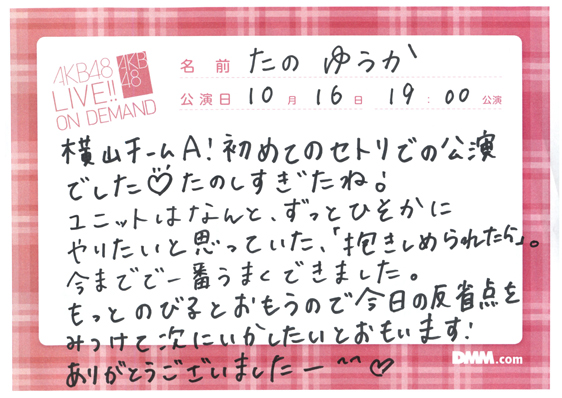 AKB48
LIVE!!
ON DEMAND
AKB
48
名前 たの ゆうか
公演日 10月 16日 19:00 公演
横山チームA!初めてのセトリでの公演
でした♡たのしすぎたね!
ユニットはなんと、ずっとひそかに
やりたいと思っていた、「抱きしめられたら」。
今までで一番うまくできました。
もっとのび子とおもうので今日の反省点を
みつけて次にいかしたいとおもいます!
ありがとうございましたー^^♡
DMM.com